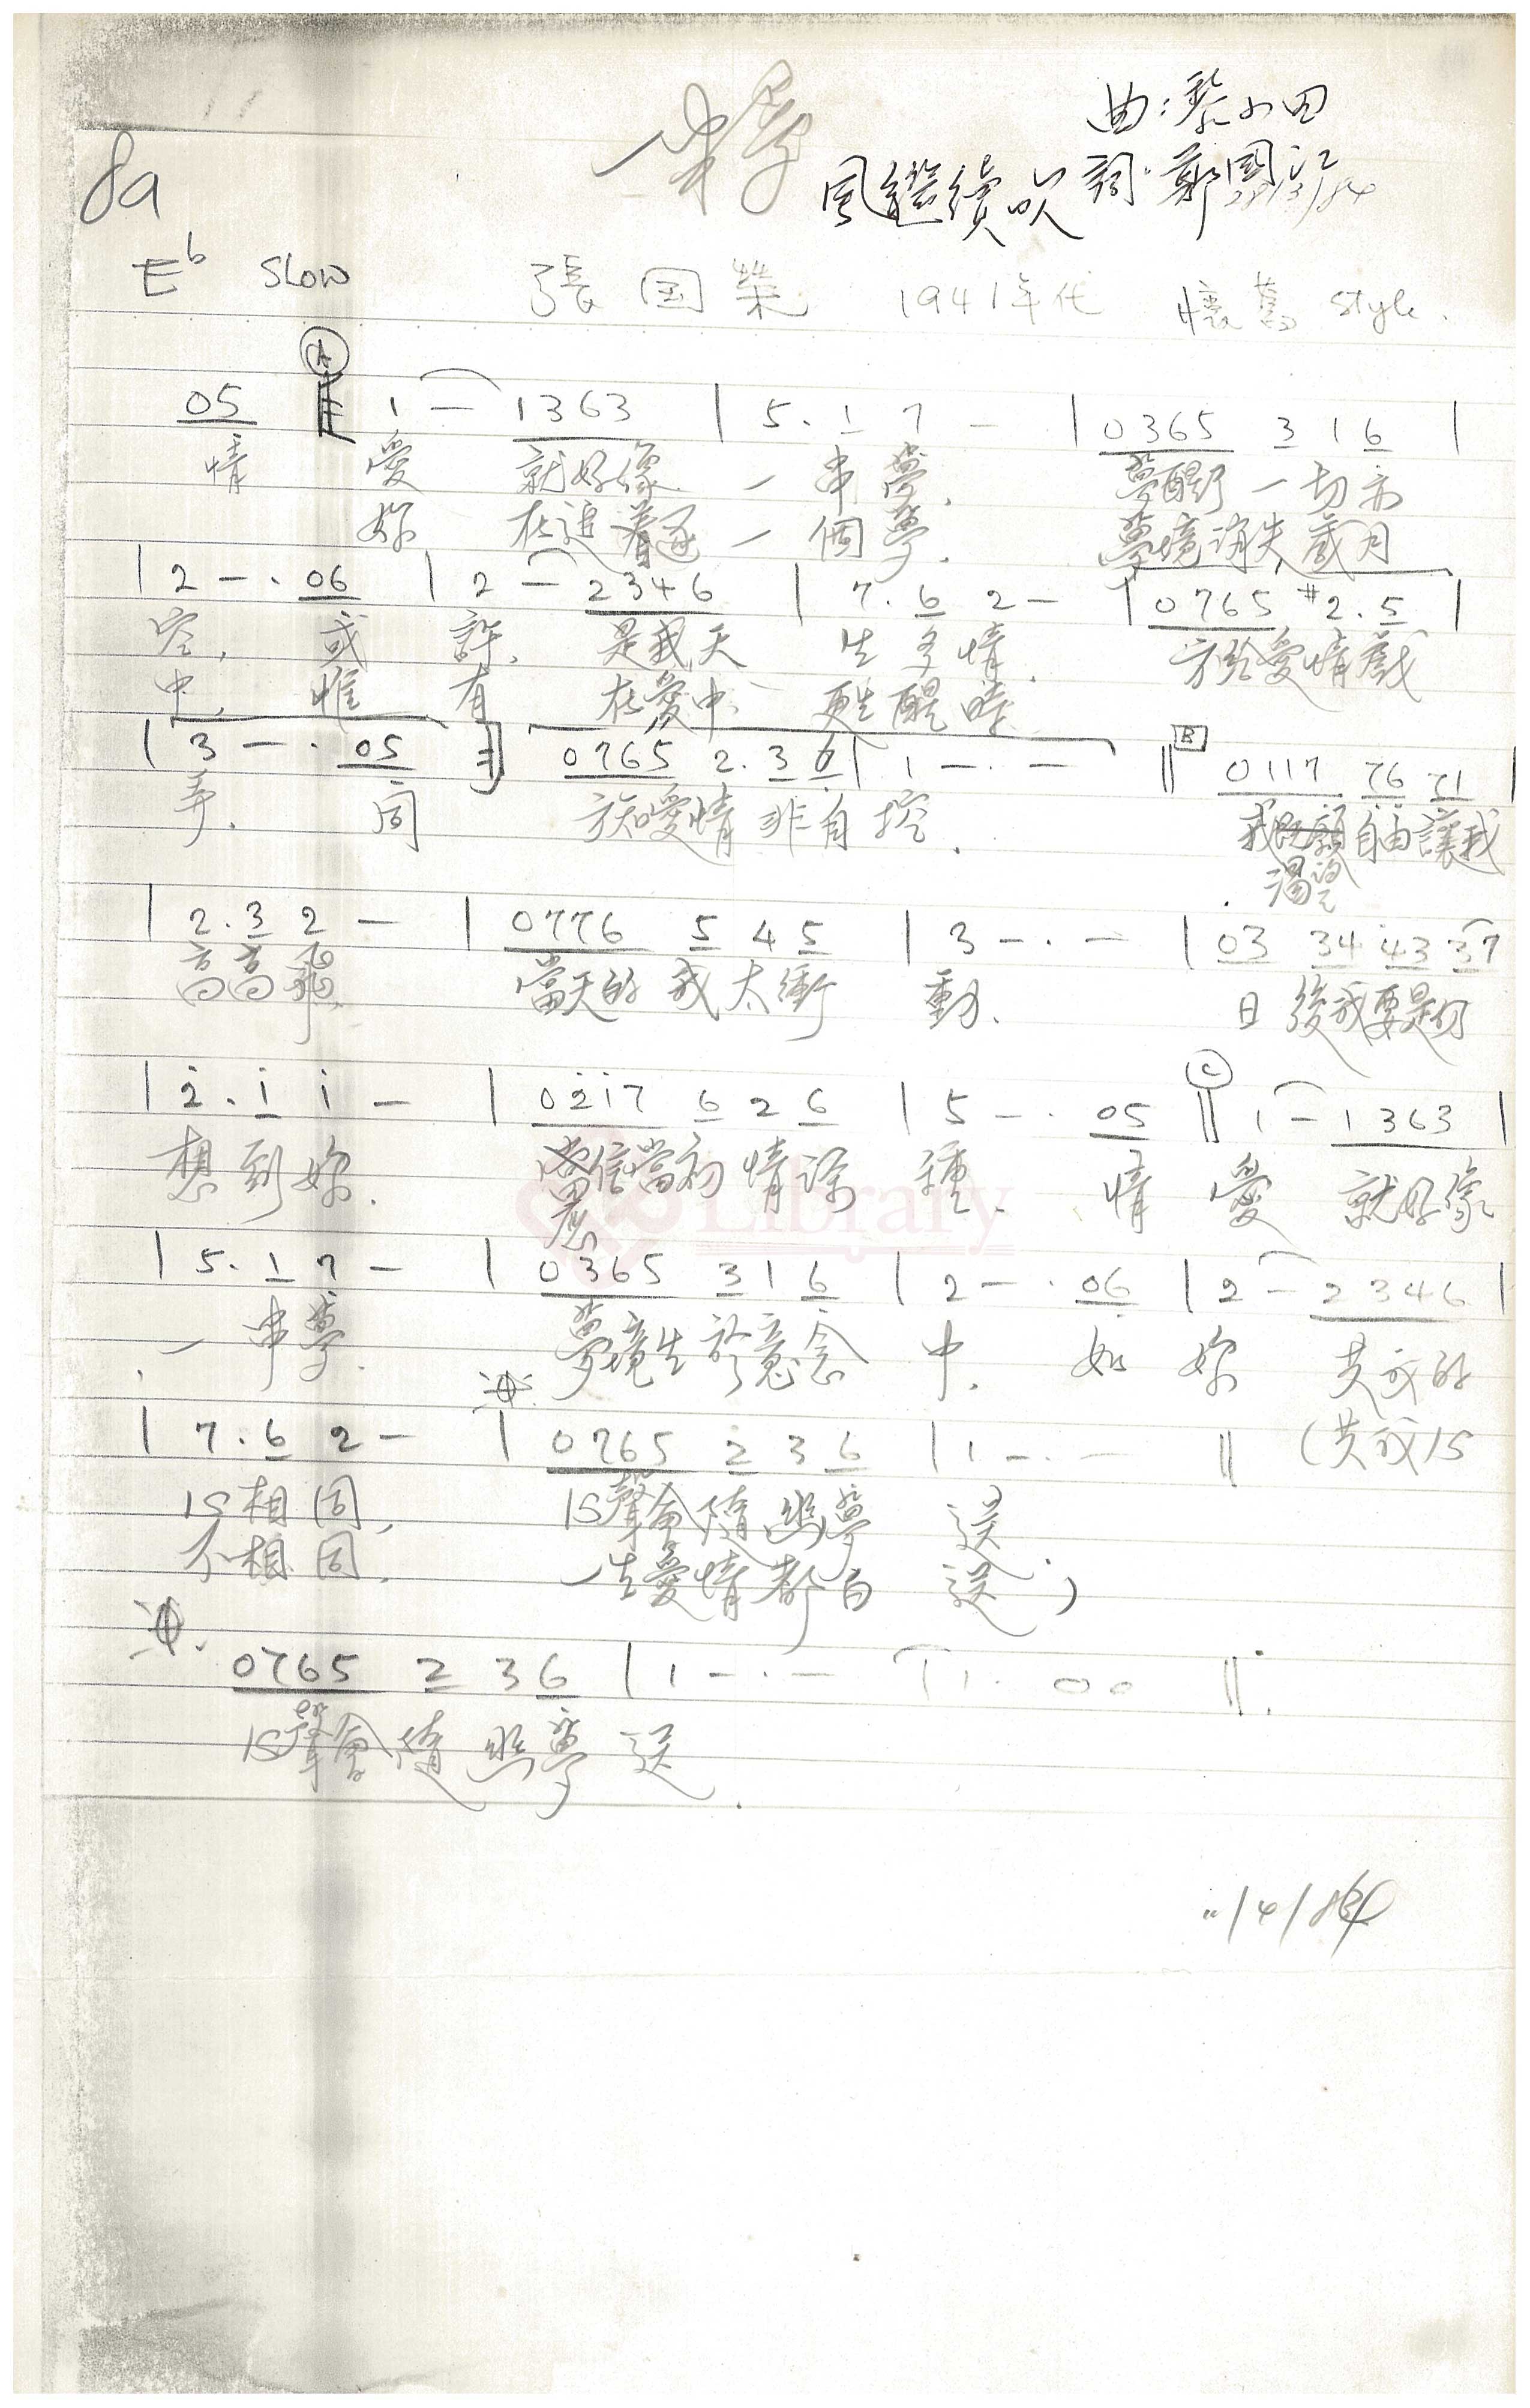 一串夢
曲：黎小田
風繼續吹 詞：鄭國江
8a
E♭ SLOW 張国榮 1941年代 懷舊 style.
A
05 1 — 1363 | 5. 1 7 — | 0365 3 1 6 |
情 愛 就好像 一串夢. 夢醒了一切亦
妳 在追着逐 一個夢. 夢境消失歲月
| 2 — . 06 | 2 — 2346 | 7. 6 2 — | 0765 #2. 5 |
空, 或 許, 是我天 生多情. 方給愛情戲
中, 惟 有 在愛中、 更生醒時
| 3 — . 05 0765 2. 3 6 | 1 — . — || B 0117 76 71 |
弄. 問 方知愛情非自控. 我既願自由讓我
渴望
| 2. 3 2 — | 0776 5 4 5 | 3 — . — | 03 34 43 37
高高飛. 當天的我太衝 動. 日後我要是仍
C
| 2. 1 1 — | 0217 6 2 6 | 5 — . 05 || 1 — 1363 |
想到妳. 信當初情深 種. 情 愛 就好像
| 5. 1 7 — | 0365 3 1 6 | 2 — . 06 | 2 — 2346 |
一串夢. 夢境生於意念 中. 如 妳 共我的
| 7. 6 2 — | 0765 2 3 6 | 1 — . — || (共我仍
仍相同, 仍聲會隨興夢 送
不相同, 一生愛情都白 送)
0765 2 3 6 | 1 — . — 1. 0 0 ||
仍聲會隨興夢送.
11/4/84
Library